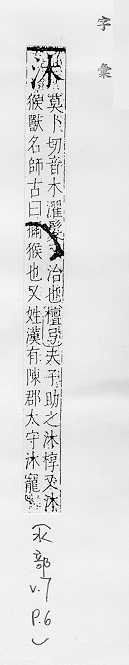 字彙
沐
莫卜切音木濯髮又治也檀弓夫子助之沐椁又沐
猴獸名師古曰獼猴也又姓漢有陳郡太守沐寵
(水部 v.7 p.6)